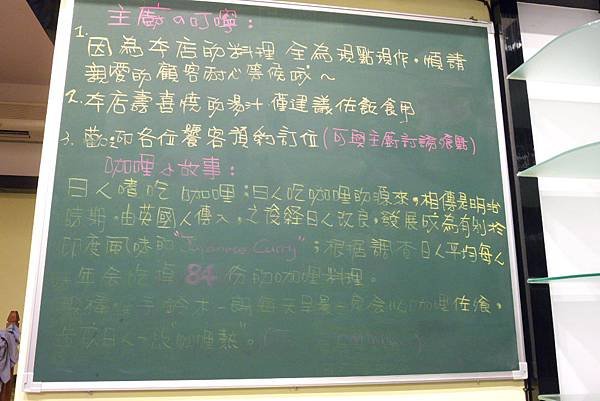 主廚の叮嚀：
1. 因為本店的料理 全為現點現作，煩請
親愛的顧客耐心等候哦～
2. 本店壽喜燒的湯汁僅建議佐飯食用
3. 歡迎各位饕客預約訂位(可與主廚討論餐點)
咖哩小故事：
日人嗜吃咖哩；日人吃咖哩的源來，相傳是明治
時期，由英國人傳入，之後經日人改良，發展成為有別於
印度風味的"Japanese Curry"；根據調查日人平均每人
年會吃掉 84 份的咖哩料理。
鈴木一朗每天早晨一定會以咖哩佐餐，
日人 咖哩熱"。